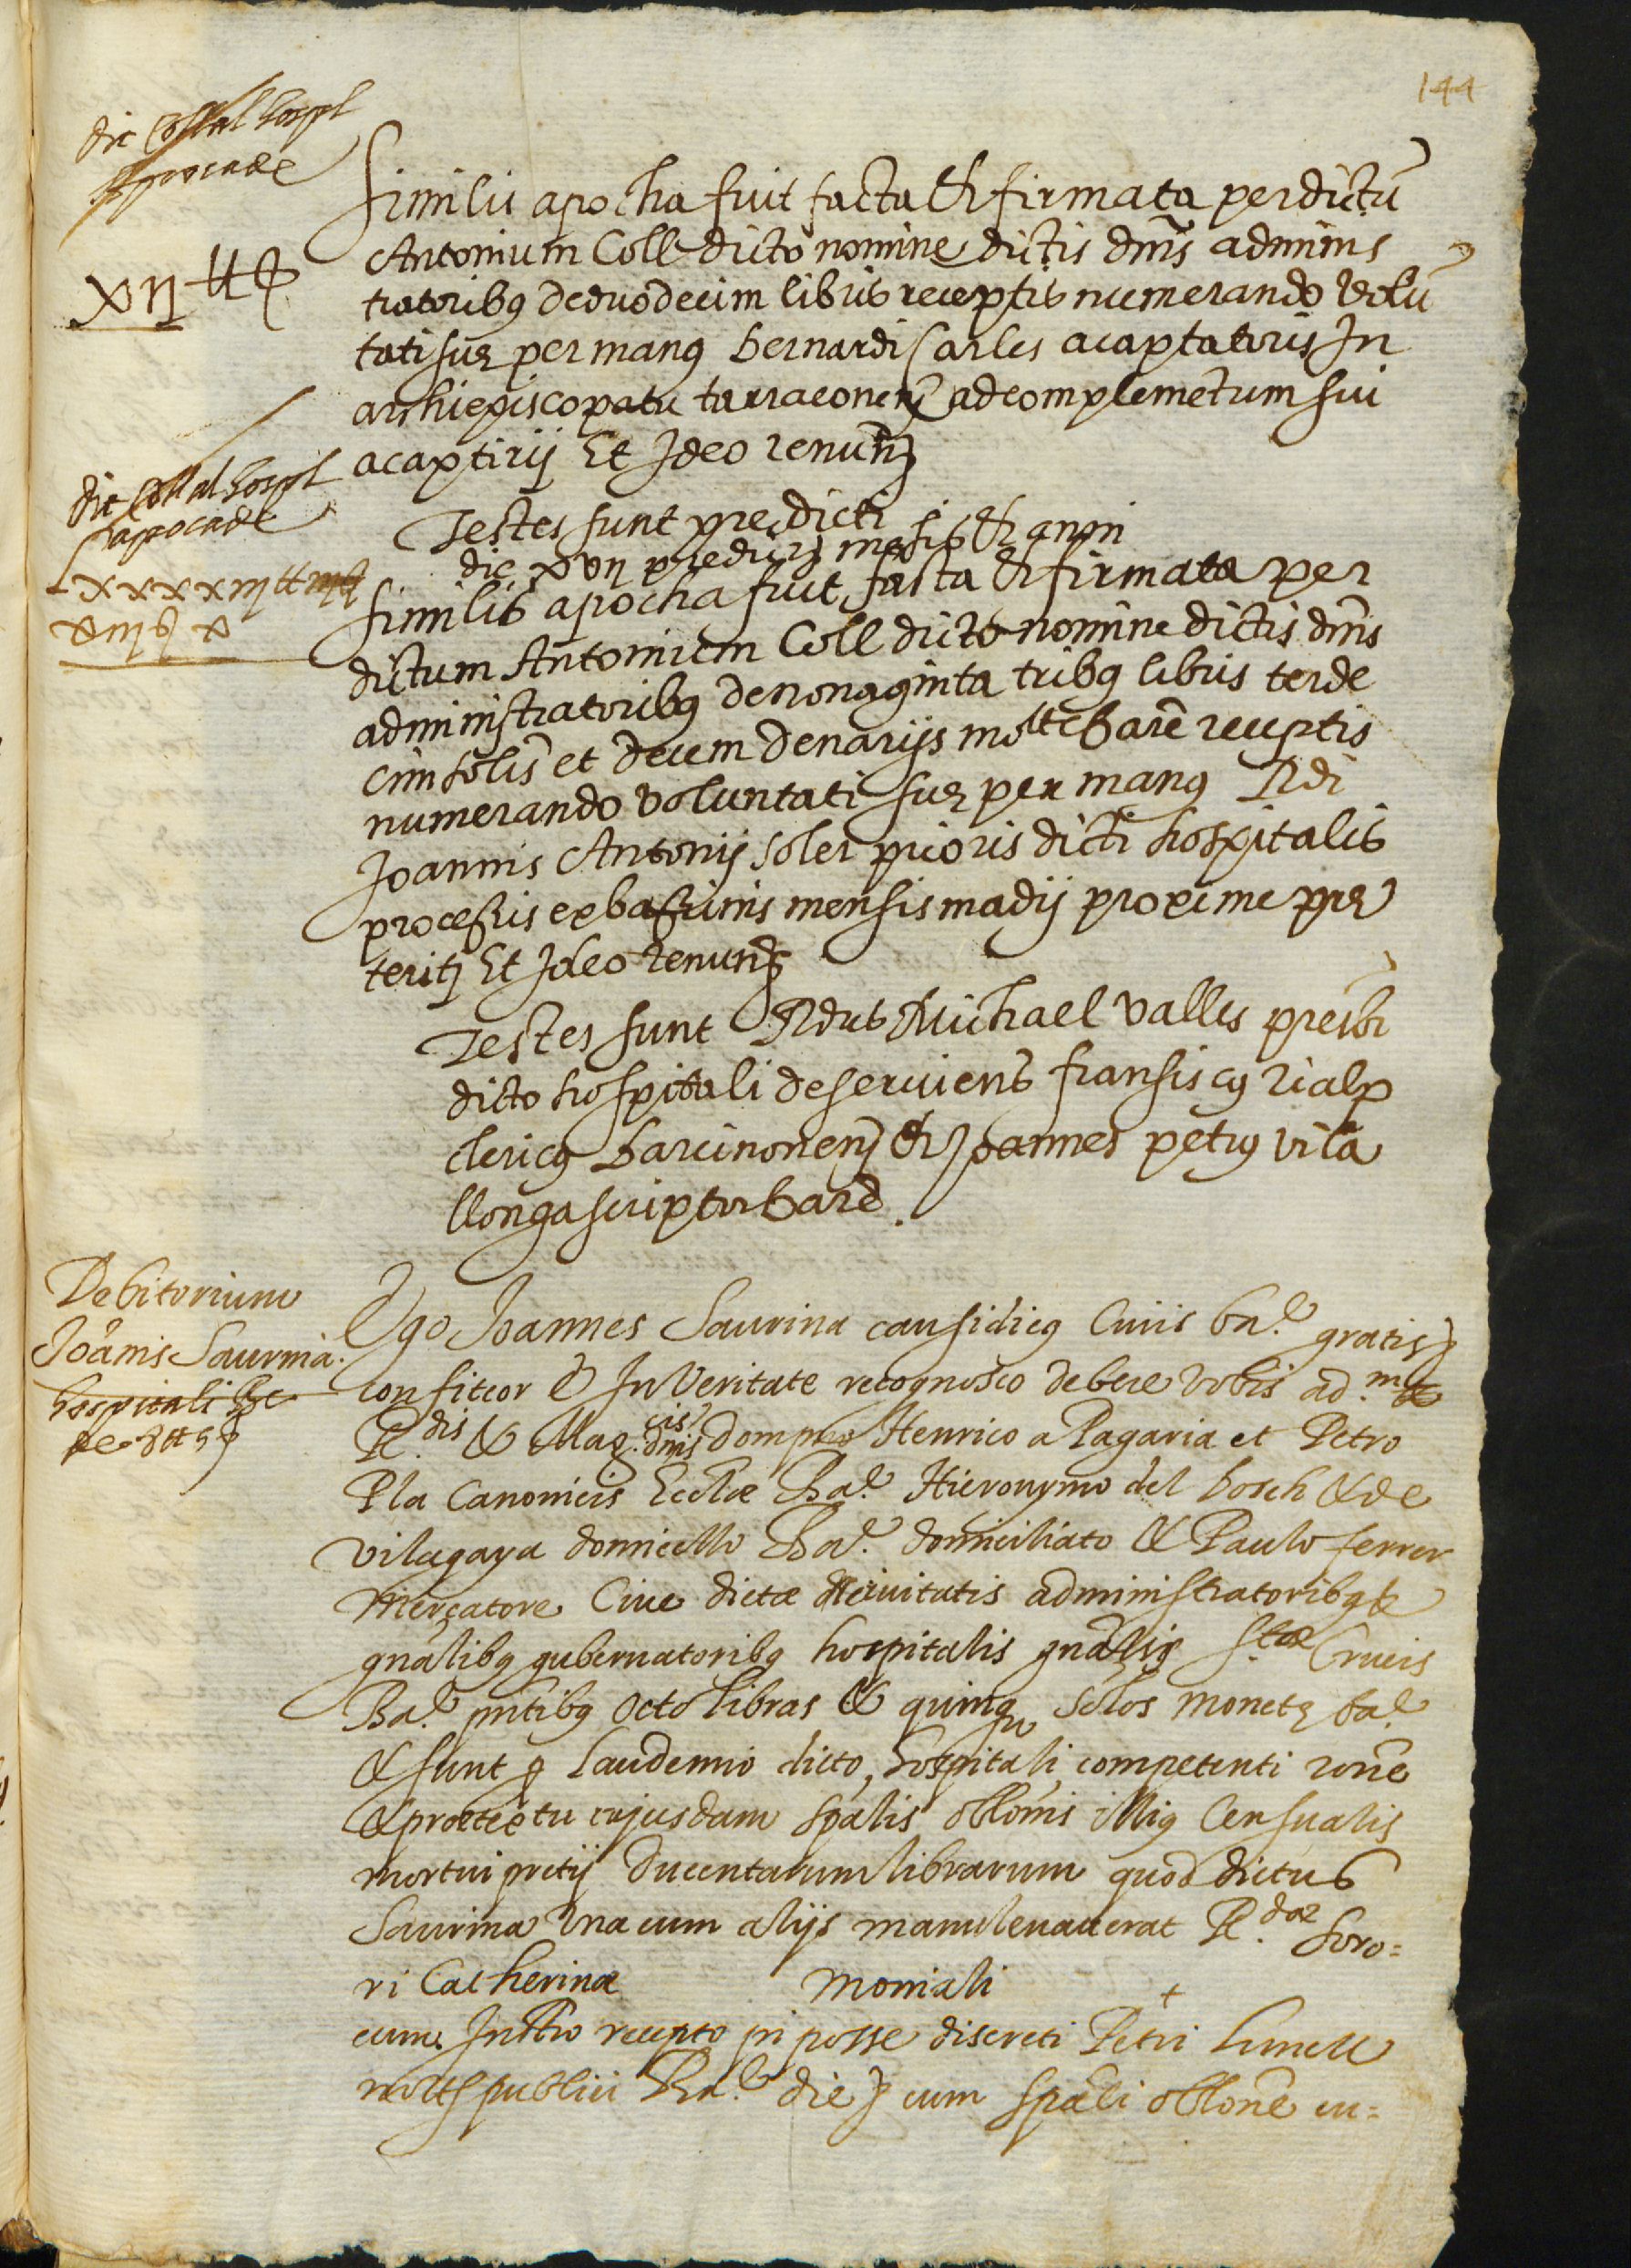 144
Similis apocha fuit facta & firmata per dictũ
Antonium Coll dicto nomine dictis dñis adminis
tratoribꝰ de duodecim libris receptis numerando volũ
tati suę per manꝰ bernardi Carles acaptatoris In
archiepiscopatu tarraconeñ ad complemẽtum sui
acaptirij Et Ideo renuñ
Testes sunt predicti
die xvii predictj mẽsis & anni
Similis apocha fuit facta & firmata per
dictum Antonium Coll dicto nomine dictis dñis
administratoribꝰ de nonaginta tribꝰ libris terde
cim solis et decem denarijs mote barẽ receptis
numerando voluntati suę per manꝰ Rdi
Joannis Antonij Soler prioris dicti hospitalis
procesis ex bassinis mensis madij proxime prę
teritj Et Ideo renunç
Testes sunt Rdus Michael valles presbr
dicto hospitali deseruiens fransiscꝰ rialp
clericꝰ barcinoneñ & Joannes petrꝰ vila
llonga scriptor barẽ.
Debitorium
Joãnis Saurina.
hospitali
de 8 tt 5 s
Ego Joannes Saurina causidicꝰ Ciuis baꝉ. gratis
confiteor & In Veritate recognosco debere vobis ad.m
R.dis & Mag.cis dnis dompno Henrico a Pagaria et Petro
Pla Canonicis Eccliæ Baꝉ. Hieronymo del bosch & de
vilagaya domicello Baꝉ. domiciliato & Paulo ferrer
Mercatore Ciue dictæ ciuitatis administratoribꝰ
gñalibꝰ gubernatoribꝰ hospitalis gñalis S.tæ Crucis
Baꝉ. pñtibꝰ octo libras & quinqꝫ solos monetę baꝉ
& sunt ꝑ laudemio dicto hospitali competenti rone
& prætextu cujusdam spãlis obloñis illiꝰ Censualis
mortui pretij ducentarum librarum quod dictus
Saurina Vna cum alijs manuleuauerat R.dæ Soro=
ri Catherinæ moniali +
cum Instro recepto in posse discreti Petri
notꝭ publici Baꝉ. die cum spãli obloñe cu=